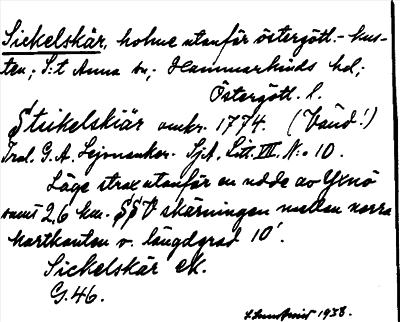 Sickelskär, holme utanför östergötl.-kus-
ten; S:t Anna sn; Hammarkinds hd;
Östergötl. l.
Stickelskiär omkr. 1774. (Vänd!)
G. A. Lejonanker. SjA, Litt. VII. N:o 10.
Läge strax utanför en udde av Yxnö
samt 2,6 km. SSV skärningen mellan norra
kartkanten o. längdgrad 10'.
Sickelskär ek.
G. 46.
1938.